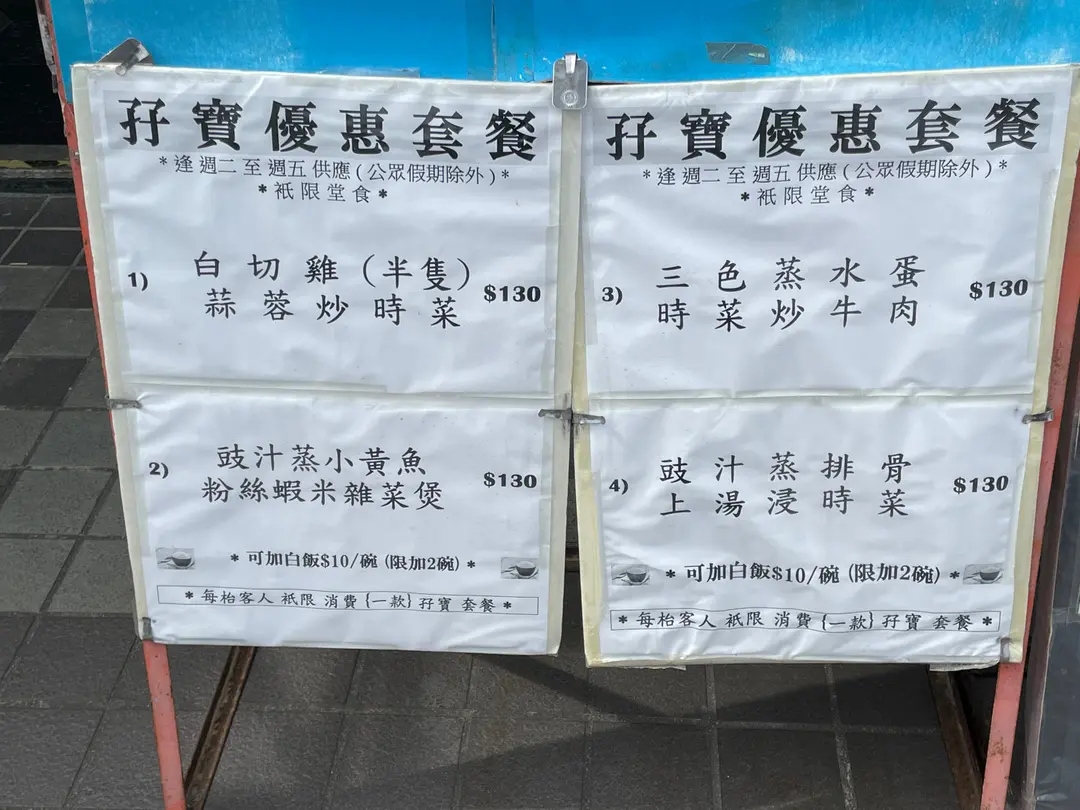 孖寶優惠套餐
*逢週二至週五供應(公眾假期除外)*
*衹限堂食*
1) 白切雞(半隻)
蒜蓉炒時菜 $130
2) 豉汁蒸小黃魚
粉絲蝦米雜菜煲 $130
*可加白飯$10/碗(限加2碗)*
*每枱客人衹限消費{一款}孖寶套餐*
孖寶優惠套餐
*逢週二至週五供應(公眾假期除外)*
*衹限堂食*
3) 三色蒸水蛋
時菜炒牛肉 $130
4) 豉汁蒸排骨
上湯浸時菜 $130
*可加白飯$10/碗(限加2碗)*
*每枱客人衹限消費{一款}孖寶套餐*